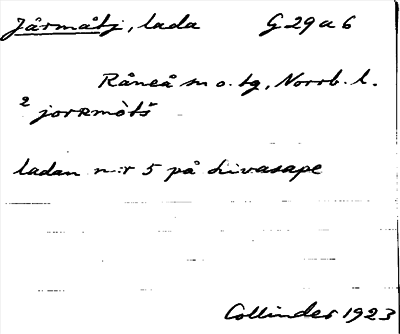 Jårmåtj, lada G 29 a 6
Råneå sn o. tg, Norrb. l.
2 jorʀmòtš
ladan n:r 5 på Livasape
Collinder 1923